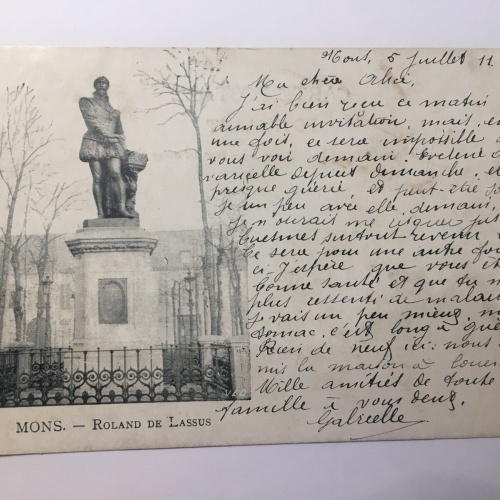 Mons, 5 Juillet 11
Ma chère Alice,
J'ai bien reçu ce matin
aimable invitation, mais, en
une fois, ce sera impossible
vous voir demain. Eveline
varicelle depuis dimanche, et
presque guérie et peut-être
je un peu avec elle, demain,
Je n'oserais me risquer jus
Cuesmes surtout revenir
Ce sera pour une autre foi
ci. J'espère que vous êt
bonne santé et que tu n
plus ressenti de malai
Je vais un peu mieux, m
tomac, c'est long à gué
Rien de neuf ici: nous
mis la maison à louer
Mille amitiés de toute
famille à vous deux,
Gabrielle
MONS. — ROLAND DE LASSUS